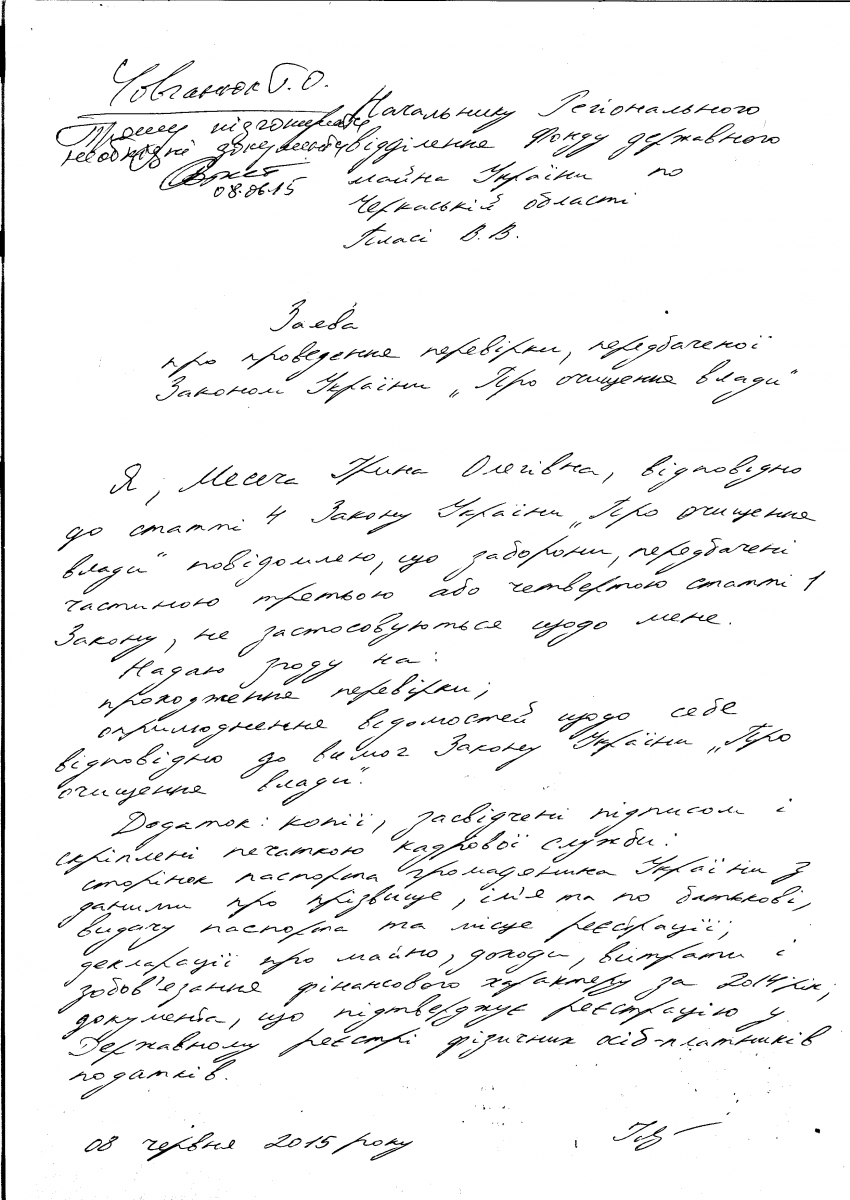 Човганюк Г.О.
Прошу підготувати
необхідні документи
08.06.15
Начальнику Регіонального
відділення Фонду державного
майна України по
Черкаській області
Пласі В.В.
Заява
про проведення перевірки, передбаченої
Законом України „Про очищення влади“
Я, Месеча Ірина Олегівна, відповідно
до статті 4 Закону України „Про очищення
влади“ повідомляю, що заборони, передбачені
частиною третьою або четвертою статті 1
Закону, не застосовуються щодо мене.
Надаю згоду на:
проходження перевірки;
оприлюднення відомостей щодо себе
відповідно до вимог Закону України „Про
очищення влади“.
Додаток: копії, засвідчені підписом і
скріплені печаткою кадрової служби:
сторінок паспорта громадянина України з
даними про прізвище, ім'я та по батькові,
видачу паспорта та місце реєстрації;
декларації про майно, доходи, витрати і
зобов'язання фінансового характеру за 2014 рік;
документа, що підтверджує реєстрацію у
Державному реєстрі фізичних осіб-платників
податків.
08 червня 2015 року